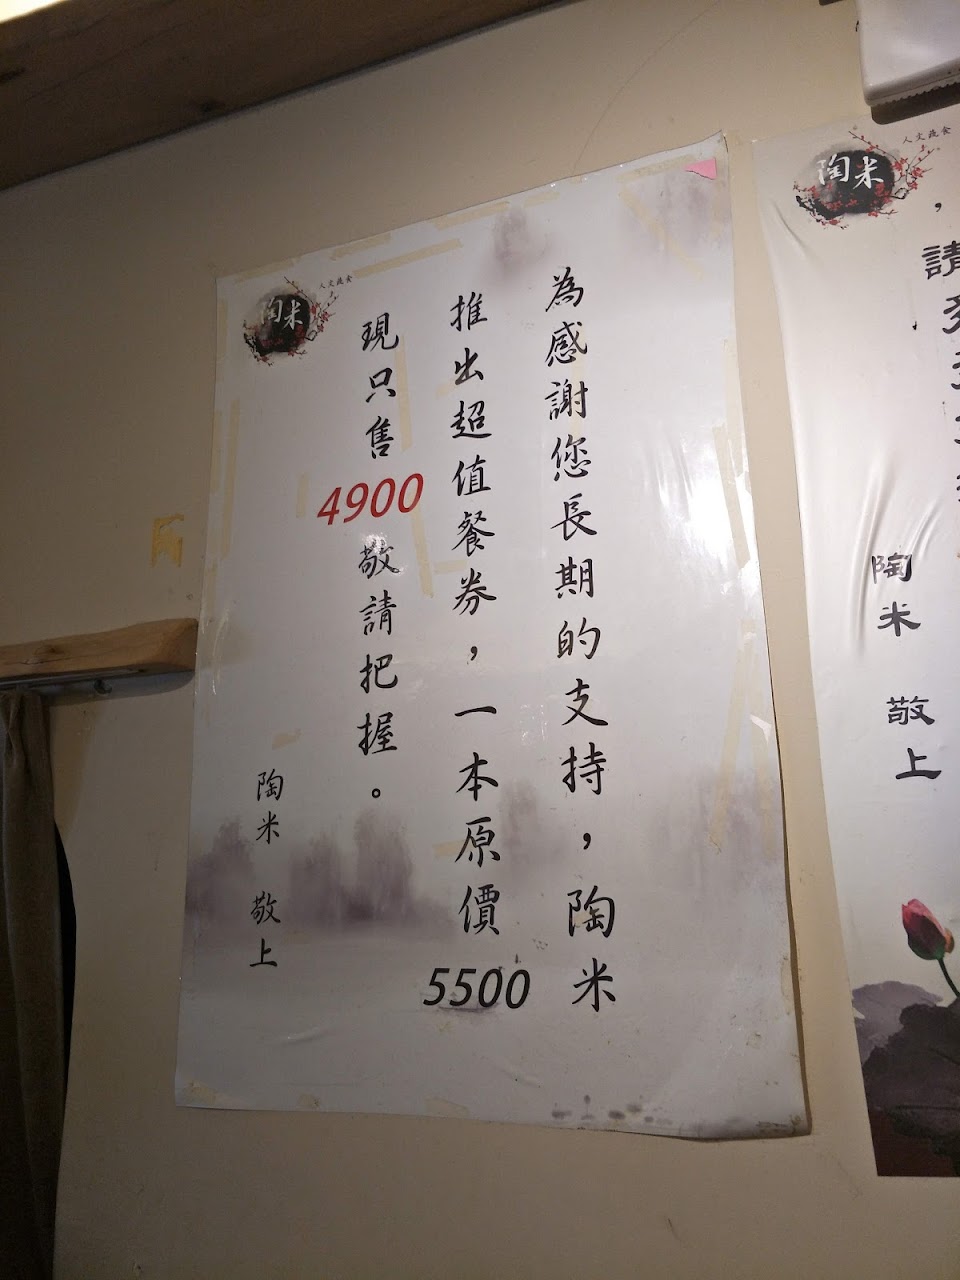 為感謝您長期的支持，陶米
推出超值餐券，一本原價5500
現只售4900敬請把握。
陶米 敬上
陶米
人文蔬食
陶米
人文蔬食
，請
陶米 敬上